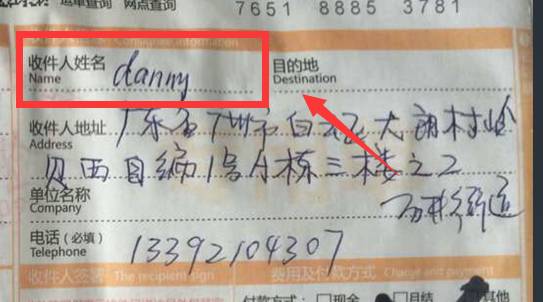 运单查询 网点查询 7651 8885 3781
收件人姓名 danny 目的地
Name Destination
收件人地址 广东省广州市白云区大朗村岭
Address
贝西自编1号A栋三楼之2
单位名称
Company
电话(必填) 13392104307
Telephone
收件人签署 The recipient sign 费用及付款方式 Charge and payment
付款方式: 现金 月结 其他